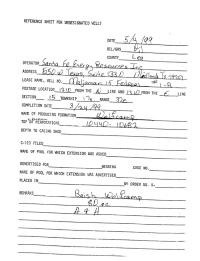 REFERENCE SHEET FOR UNDESIGNATED WELLS
DATE 5/4/99
COUNTY Lea
OPERATOR Santa Fe Energy Resources Inc
ADDRESS 550 W Texas, Suite 1330
LEASE NAME, WELL NO. 15 Federal
FOOTAGE LOCATION 1310 FROM THE N LINE AND 1310 FROM THE E LINE
SECTION 15 TOWNSHIP 17s RANGE 32e
COMPLETION DATE 3/24/99
NAME OF PRODUCING FORMATION Wolfcamp
TOP OF PERFORATIONS 10440-10682
DEPTH TO CASING SHOE
C-123 FILED
NAME OF POOL FOR WHICH EXTENSION WAS ASKED
ADVERTISED FOR HEARING CASE NO.
NAME OF POOL FOR WHICH EXTENSION WAS ADVERTISED
PLACED IN BY ORDER NO. R-
REMARKS Baish Wolfcamp